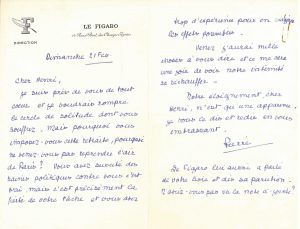 LE FIGARO
DIRECTION
Dimanche 21 Fév.
Cher Henri,
je suis près de vous de tout
cœur et je voudrais rompre
le cercle de solitude dont vous
souffrez. Mais pourquoi vous
imposez-vous cette retraite, pourquoi
ne venez-vous pas reprendre l'air
de Paris ? Vous avez suscité des
haines politiques contre vous c'est
vrai mais c'est précisément ce
de votre tâche et vous avez
trop d'expérience pour en
les effets
Venez j'aurai mille
choses à vous dire et ce me sera
une joie de voir notre intimité
se réchauffer.
Notre éloignement cher
Henri, n'est que une apparence
je vous le dis et redis en vous
embrassant.
Pierre
Le Figaro lui aussi a parlé
de votre livre et de sa parution.
N'avez-vous pas vu la note ci-jointe ?